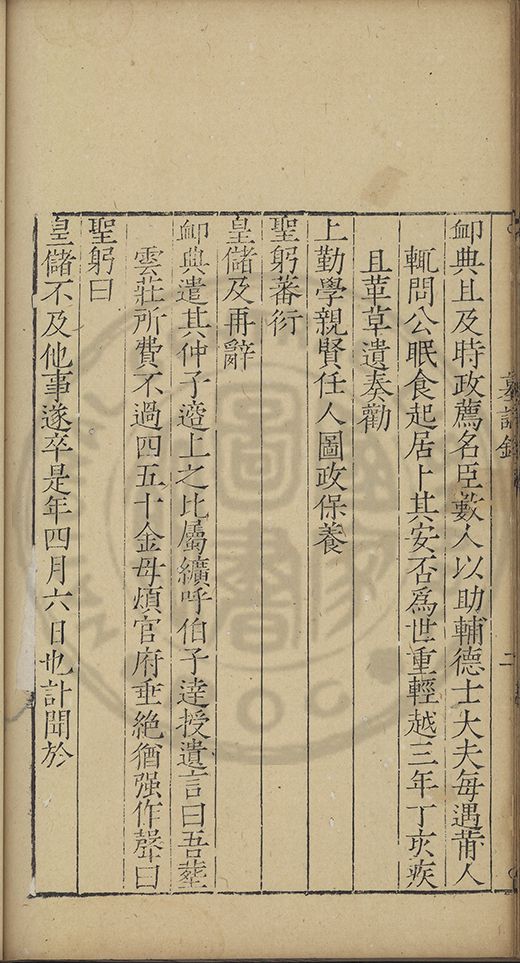 卹典且及時政薦名臣藪人以助輔德士大夫每遇莆人
輒問公眠食起居卜其安否爲世重輕越三年丁亥疾
且革草遺奏勸
上勤學親賢任人圖政保養
聖躬蕃衍
皇儲及再辭
卹典遣其仲子達上之比屬纊呼伯子達授遺言曰吾塟
雲莊所費不過四五十金毋煩官府垂絶猶强作聲曰
聖躬曰
皇儲不及他事遂卒是年四月六日也訃聞於
墓誌銘
二